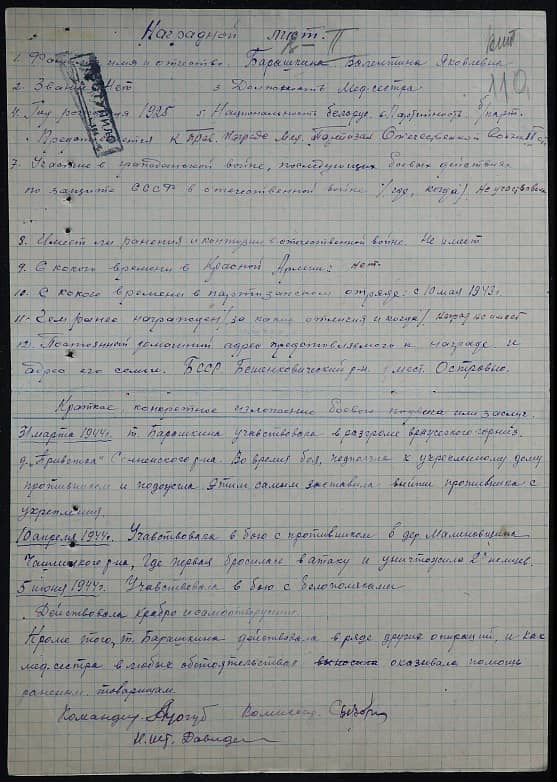 Наградной лист.
II
110
1. имя и отчество. Барашкина Валентина Яковлевна
2. Звание Нет 3 Должность Мед.сестра
4. Год рождения 1925 5 Национальность белорус. 6 Партийность б/парт.
к прав. награде Мед. Партизан Отечественной Войны II ст.
7. Участие в гражданской войне, последующих боевых действиях
по защите СССР в отечественной войне /где, когда/. Не участвовала
8. Имеет ли ранения и контузии в отечественной войне. Не имеет
9. С какого времени в Красной Армии: нет.
10. С какого времени в партизанском отряде: с 10 мая 1943г.
11. Чем ранее награжден /за какие отличия и когда/. Наград не имеет
12. Постоянный домашний адрес представляемого к награде и
адрес его семьи. БССР Бешенковический р-н. мест. Островно.
Краткое, конкретное изложение боевого подвига или заслуг.
31 марта 1944г. т. Барашкина участвовала в разгроме вражеского
д. Сенненского р-на. Во время боя, подползла к укрепленному дому
противником и подожгла этим самым заставила выйти противника с
укрепления.
10 апреля 1944г. Учавствовала в бою с противником в дер.
Чашникского р-на, где первая бросилась в атаку и уничтожила 2х немцев.
5 июня 1944г. Учавствовала в бою с
Действовала храбро и самоотверженно.
Кроме того, т. Барашкина действовала в ряде других операций, и как
мед.сестра в любых обстоятельствах выносила оказывала помощь
раненым товарищам.
Командир Комиссар
Н.шт.